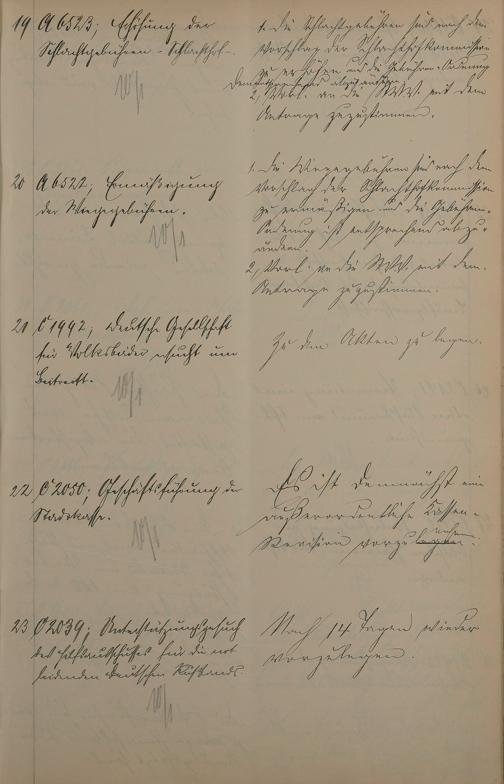 19 A 6523; Erhöhung der
Schlachtgebühren - Schlachthof -.
10/1
1. Die Schlachtgebühren sind nach dem
Vorschlag der Schlachthofkommission
zu erhöhen und die Gebühren-Ordnung
Dementsprechend abzuändern.
2, Vorl. an die StVV. mit dem
Antrage zuzustimmen.
20 A 6522; Ermäßigung
der Wiegegebühren.
10/1
1. Die Wiegegebühren sind nach dem
Vorschlag der Schlachthofkommission
zu ermäßigen und die Gebühren-
Ordnung ist entsprechend abzu-
ändern.
2, Vorl. an die StVV. mit dem
Antrage zuzustimmen.
21 C 1992; Deutsche Gesellschaft
für Volksbäder ersucht um
Beitritt.
10/1
Zu den Akten zu legen.
22 C 2050; Geschäftsführung der
Stadtkasse.
10/1
Es ist demnächst eine
außerordentliche Kassen-
Revision vorzunehmen.
23 C 2039; Unterstützungsgesuch
des Hilfsausschusses für die not
leidenden deutschen Rußlands.
10/1
Nach 14 Tagen wieder
vorzulegen.